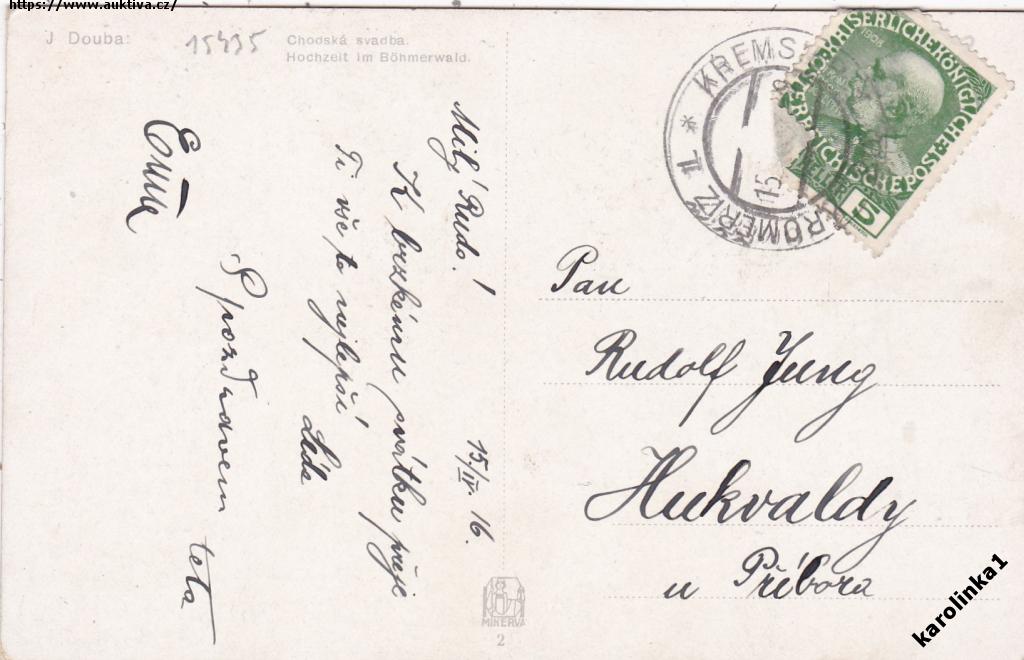 https://www.auktiva.cz/
J Douba:
15435
Chodská svadba.
Hochzeit im Böhmerwald.
Milý Rudo!
15/IV. 16.
K brzkému svátku přeje
Ti vše to nejlepší
Léda
S pozdravem teta
Ema
KREMS
KROMĚŘÍŽ 1
15
KAISERLICHE KÖNIGLICHE
ÖSTERREICHISCHE POST
1908
HELLER
5
Pan
Rudolf Jung
Hukvaldy
u Příbora
MINERVA
2
karolinka1